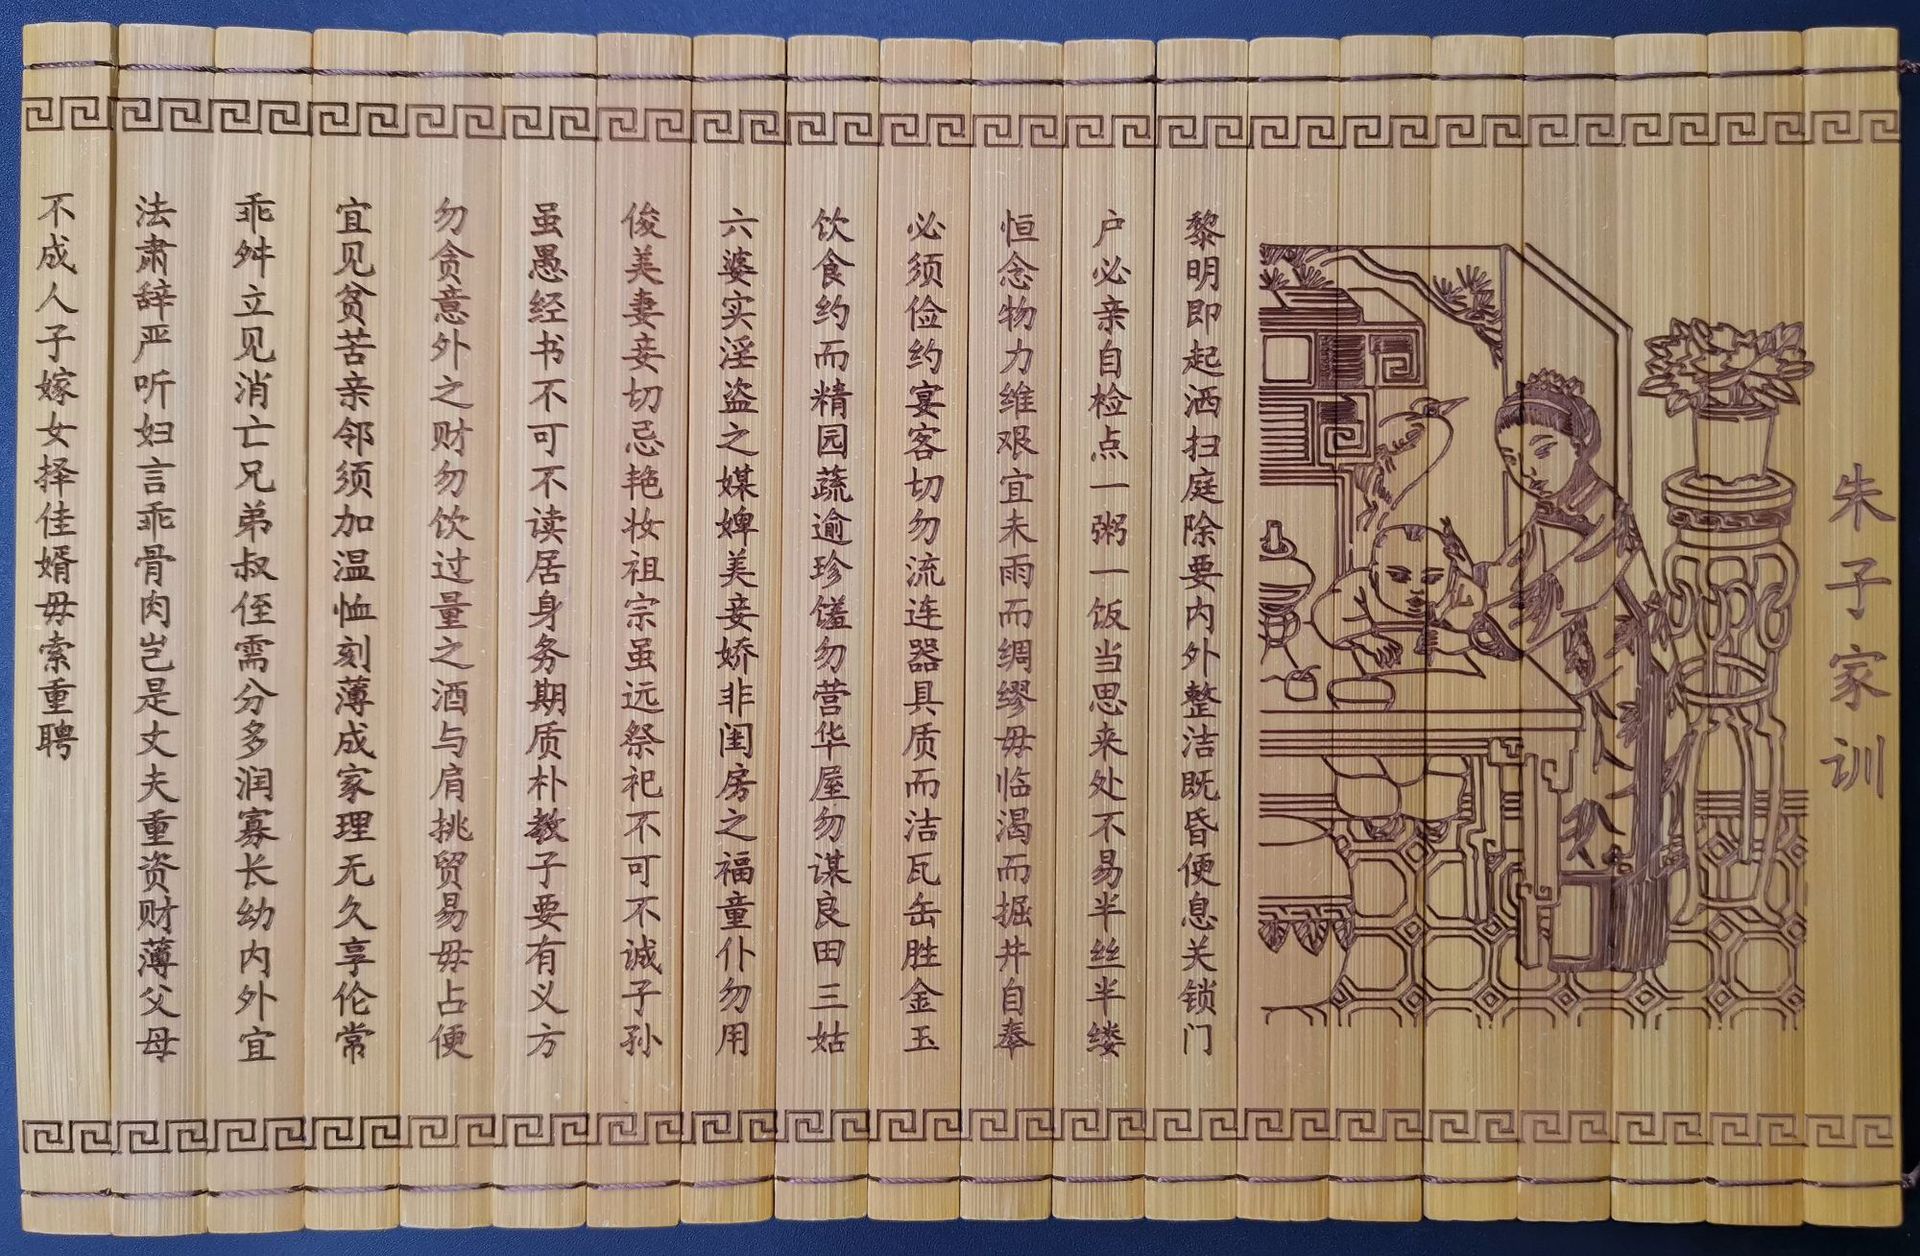 朱子家训
黎明即起洒扫庭除要内外整洁既昏便息关锁门
户必亲自检点一粥一饭当思来处不易半丝半缕
恒念物力维艰宜未雨而绸缪毋临渴而掘井自奉
必须俭约宴客切勿流连器具质而洁瓦缶胜金玉
饮食约而精园蔬逾珍馐勿营华屋勿谋良田三姑
六婆实淫盗之媒婢美妾娇非闺房之福童仆勿用
俊美妻妾切忌艳妆祖宗虽远祭祀不可不诚子孙
虽愚经书不可不读居身务期质朴教子要有义方
勿贪意外之财勿饮过量之酒与肩挑贸易毋占便
宜见贫苦亲邻须加温恤刻薄成家理无久享伦常
乖舛立见消亡兄弟叔侄需分多润寡长幼内外宜
法肃辞严听妇言乖骨肉岂是丈夫重资财薄父母
不成人子嫁女择佳婿毋索重聘